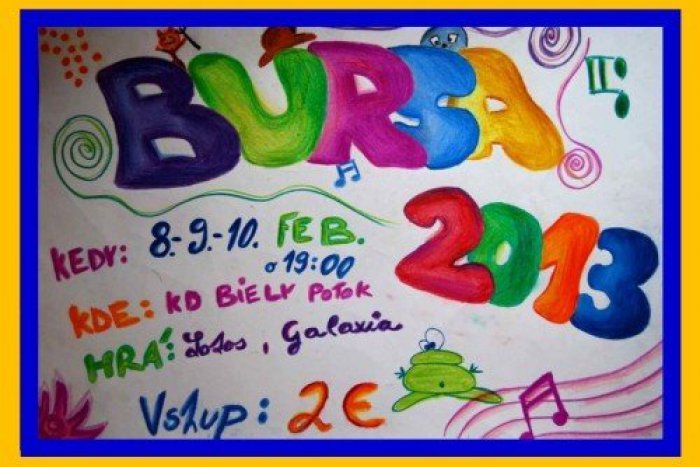 BURSA
2013
KEDY: 8.-9.-10. FEB.
o 19:00
KDE: KD BIELY POTOK
HRÁ: Lotos, Galaxia
Vstup: 2€